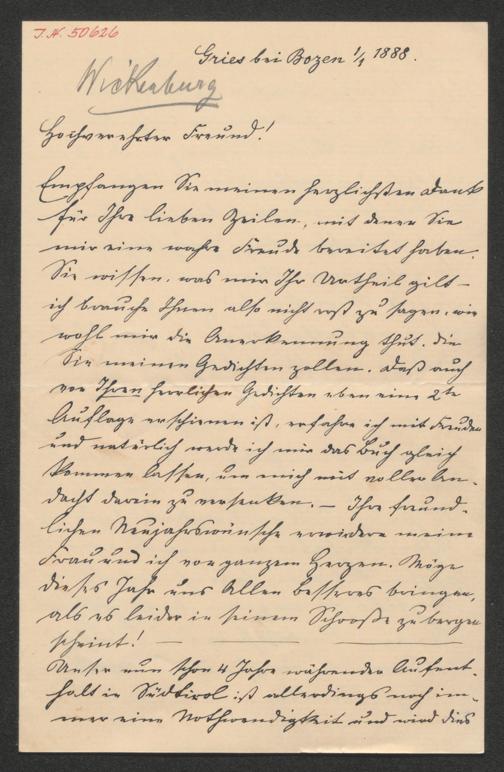 J.N. 50626
Gries bei Bozen 1/1 1888.
Wickenburg
Hochverehrter Freund!
Empfangen Sie meinen herzlichsten Dank
für Ihre lieben Zeilen, mit denen Sie
mir eine wahre Freude bereitet haben.
Sie wissen, was mir Ihr Urtheil gilt –
ich brauche Ihnen also nicht erst zu sagen, wie
wohl mir die Anerkennung thut, die
Sie meinen Gedichten zollen. Daß auch
von Ihren herrlichen Gedichten eben eine 2te
Auflage erschienen ist, erfahre ich mit Freuden
und natürlich werde ich mir das Buch gleich
kommen lassen, um mich mit voller An-
dacht darein zu versenken. – Ihre freund-
lichen Neujahrswünsche erwidern meine
Frau und ich von ganzem Herzen. Möge
dieses Jahr uns Allen besseres bringen,
als es leider in seinem Schooße zu bergen
scheint! –
Unser nun schon 4 Jahre währender Aufent-
halt in Südtirol ist allerdings noch im-
mer eine Nothwendigkeit und wird dies